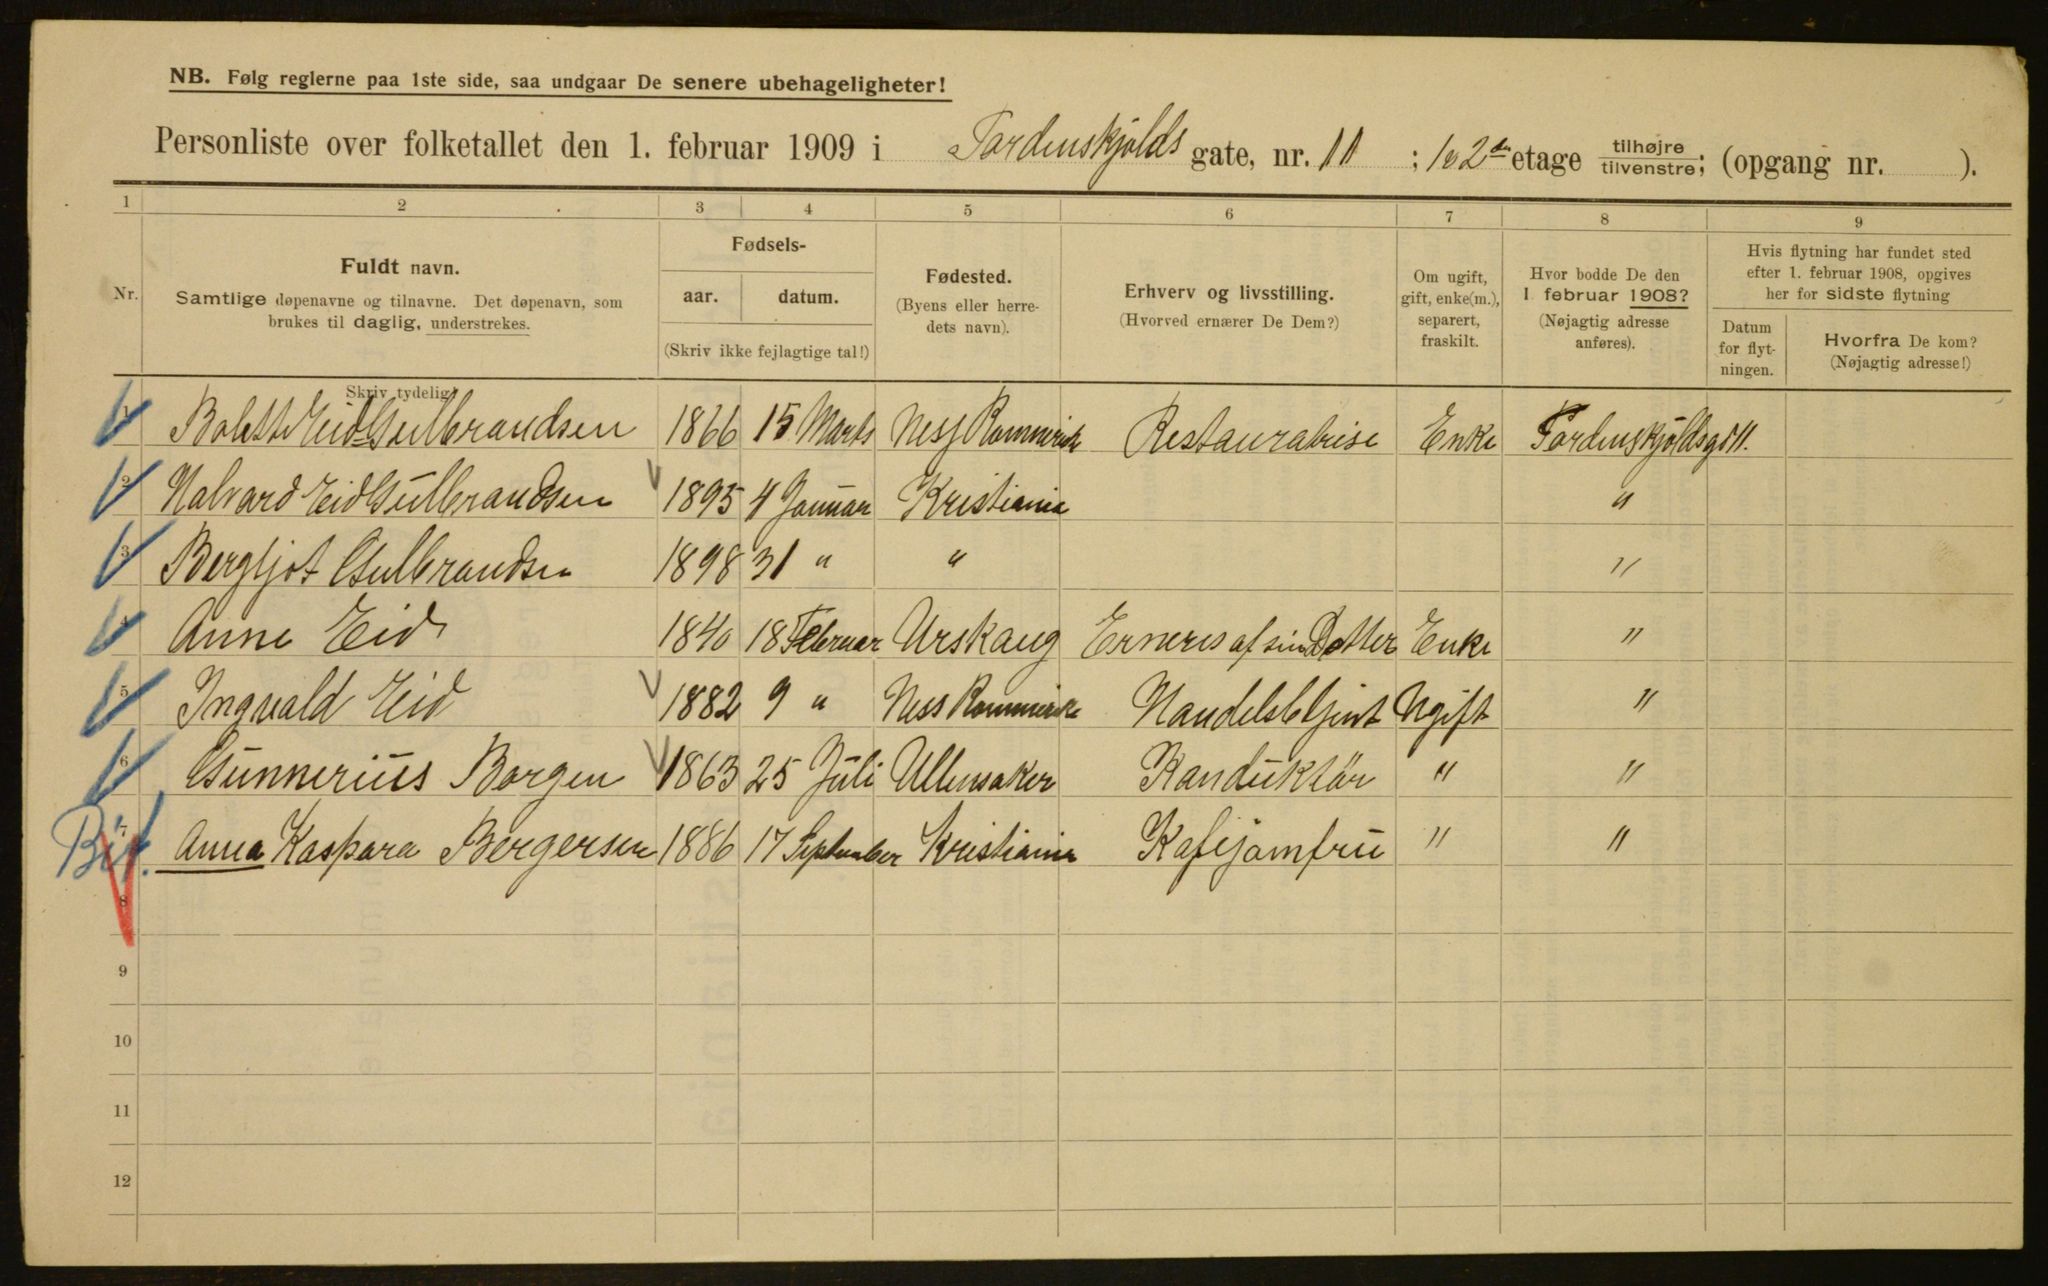 NB. Følg reglerne paa 1ste side, saa undgaar De senere ubehageligheter!
Personliste over folketallet den 1. februar 1909 i Tordenskjolds gate, nr. 11 ; 1 o 2den etage tilhøjre tilvenstre; (opgang nr. ).
1 2 3 4 5 6 7 8 9
Nr. Fuldt navn. Samtlige døpenavne og tilnavne. Det døpenavn, som brukes til daglig, understrekes. Skriv tydelig!
Fødsels- aar. datum. (Skriv ikke fejlagtige tal!)
Fødested. (Byens eller herredets navn).
Erhverv og livsstilling. (Hvorved ernærer De Dem?)
Om ugift, gift, enke(m.), separert, fraskilt.
Hvor bodde De den 1 februar 1908? (Nøjagtig adresse anføres).
Hvis flytning har fundet sted efter 1. februar 1908, opgives her for sidste flytning
Datum for flytningen. Hvorfra De kom? (Nøjagtig adresse!)
1 Bolette Eid Gulbrandsen 1866 15 Marts Nes Romerike Restauratrise Enke Tordenskjoldsgd 11.
2 Halvard Eid Gulbrandsen 1895 4 Januar Kristiania "
3 Bergljot Gulbrandsen 1898 31 " " "
4 Anne Eid 1840 18 Februar Urskaug Erneres af sin Dotter Enke "
5 Ingvald Eid 1882 9 " Ness Rommerike Handelsbtjent Ugift "
6 Gunnerius Borgen 1863 25 Juli Ullensaker Konduktör " "
Bit. 7 Anna Kaspara Bergersen 1886 17 September Kristiania Kafejomfru " "
8
9
10
11
12